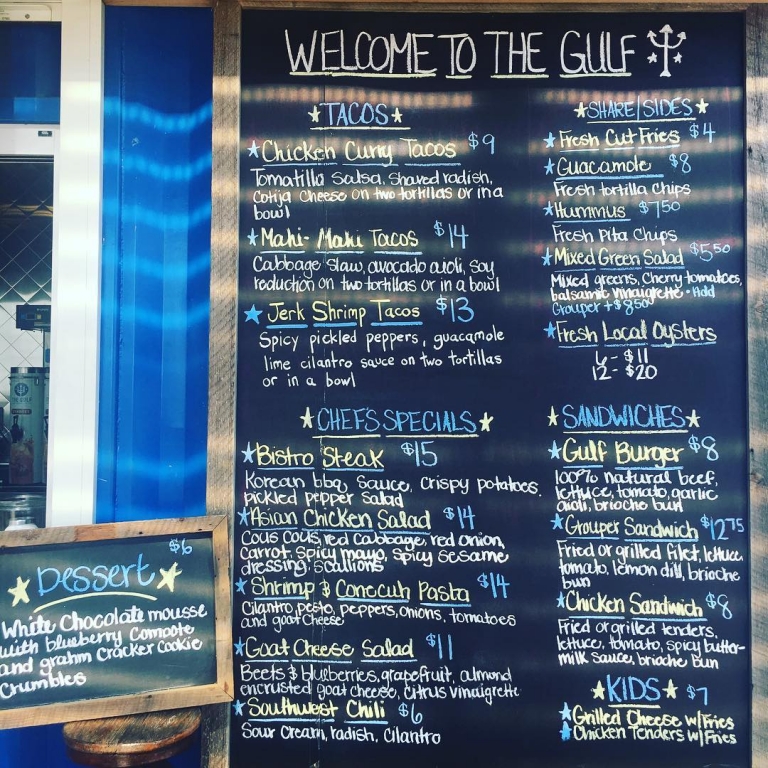 WELCOME TO THE GULF
TACOS
Chicken Curry Tacos $9
Tomatilla Salsa, Shaved radish,
Cotija Cheese on two tortillas or in a
bowl
Mahi-Mahi Tacos $14
Cabbage Slaw, avocado aioli, Soy
reduction on two tortillas or in a bowl
Jerk Shrimp Tacos $13
Spicy pickled peppers, guacamole
lime cilantro sauce on two tortillas
or in a bowl
SHARE/SIDES
Fresh Cut Fries $4
Guacamole $8
Fresh tortilla Chips
Hummus $7.50
Fresh Pita Chips
Mixed Green Salad $5.50
Mixed greens, Cherry tomatoes,
balsamic vinaigrette - Add
Grouper + $8.50
Fresh Local Oysters
6 - $11
12 - $20
CHEFS SPECIALS
Bistro Steak $15
Korean bbq Sauce, Crispy potatoes,
pickled pepper Salad
Asian Chicken Salad $14
Cous Cous, red Cabbage, red onion,
Carrot, spicy mayo, spicy sesame
dressing, scallions
Shrimp & Conecuh Pasta $14
Cilantro, pesto, peppers, onions, tomatoes
and goat Cheese
Goat Cheese Salad $11
Beets & blueberries, grapefruit, almond
encrusted goat cheese, Citrus vinaigrette
Southwest Chili $6
Sour Cream, radish, Cilantro
SANDWICHES
Gulf Burger $8
100% natural beef,
lettuce, tomato, garlic
aioli, brioche bun
Grouper Sandwich $12.75
Fried or grilled filet, lettuce
tomato, lemon dill, brioche
bun
Chicken Sandwich $8
Fried or grilled tenders,
lettuce, tomato, spicy butter-
milk Sauce, brioche bun
KIDS $7
Grilled Cheese w/Fries
Chicken Tenders w/Fries
$6
Dessert
White Chocolate mousse
with blueberry Compote
and grahm Cracker Cookie
Crumbles